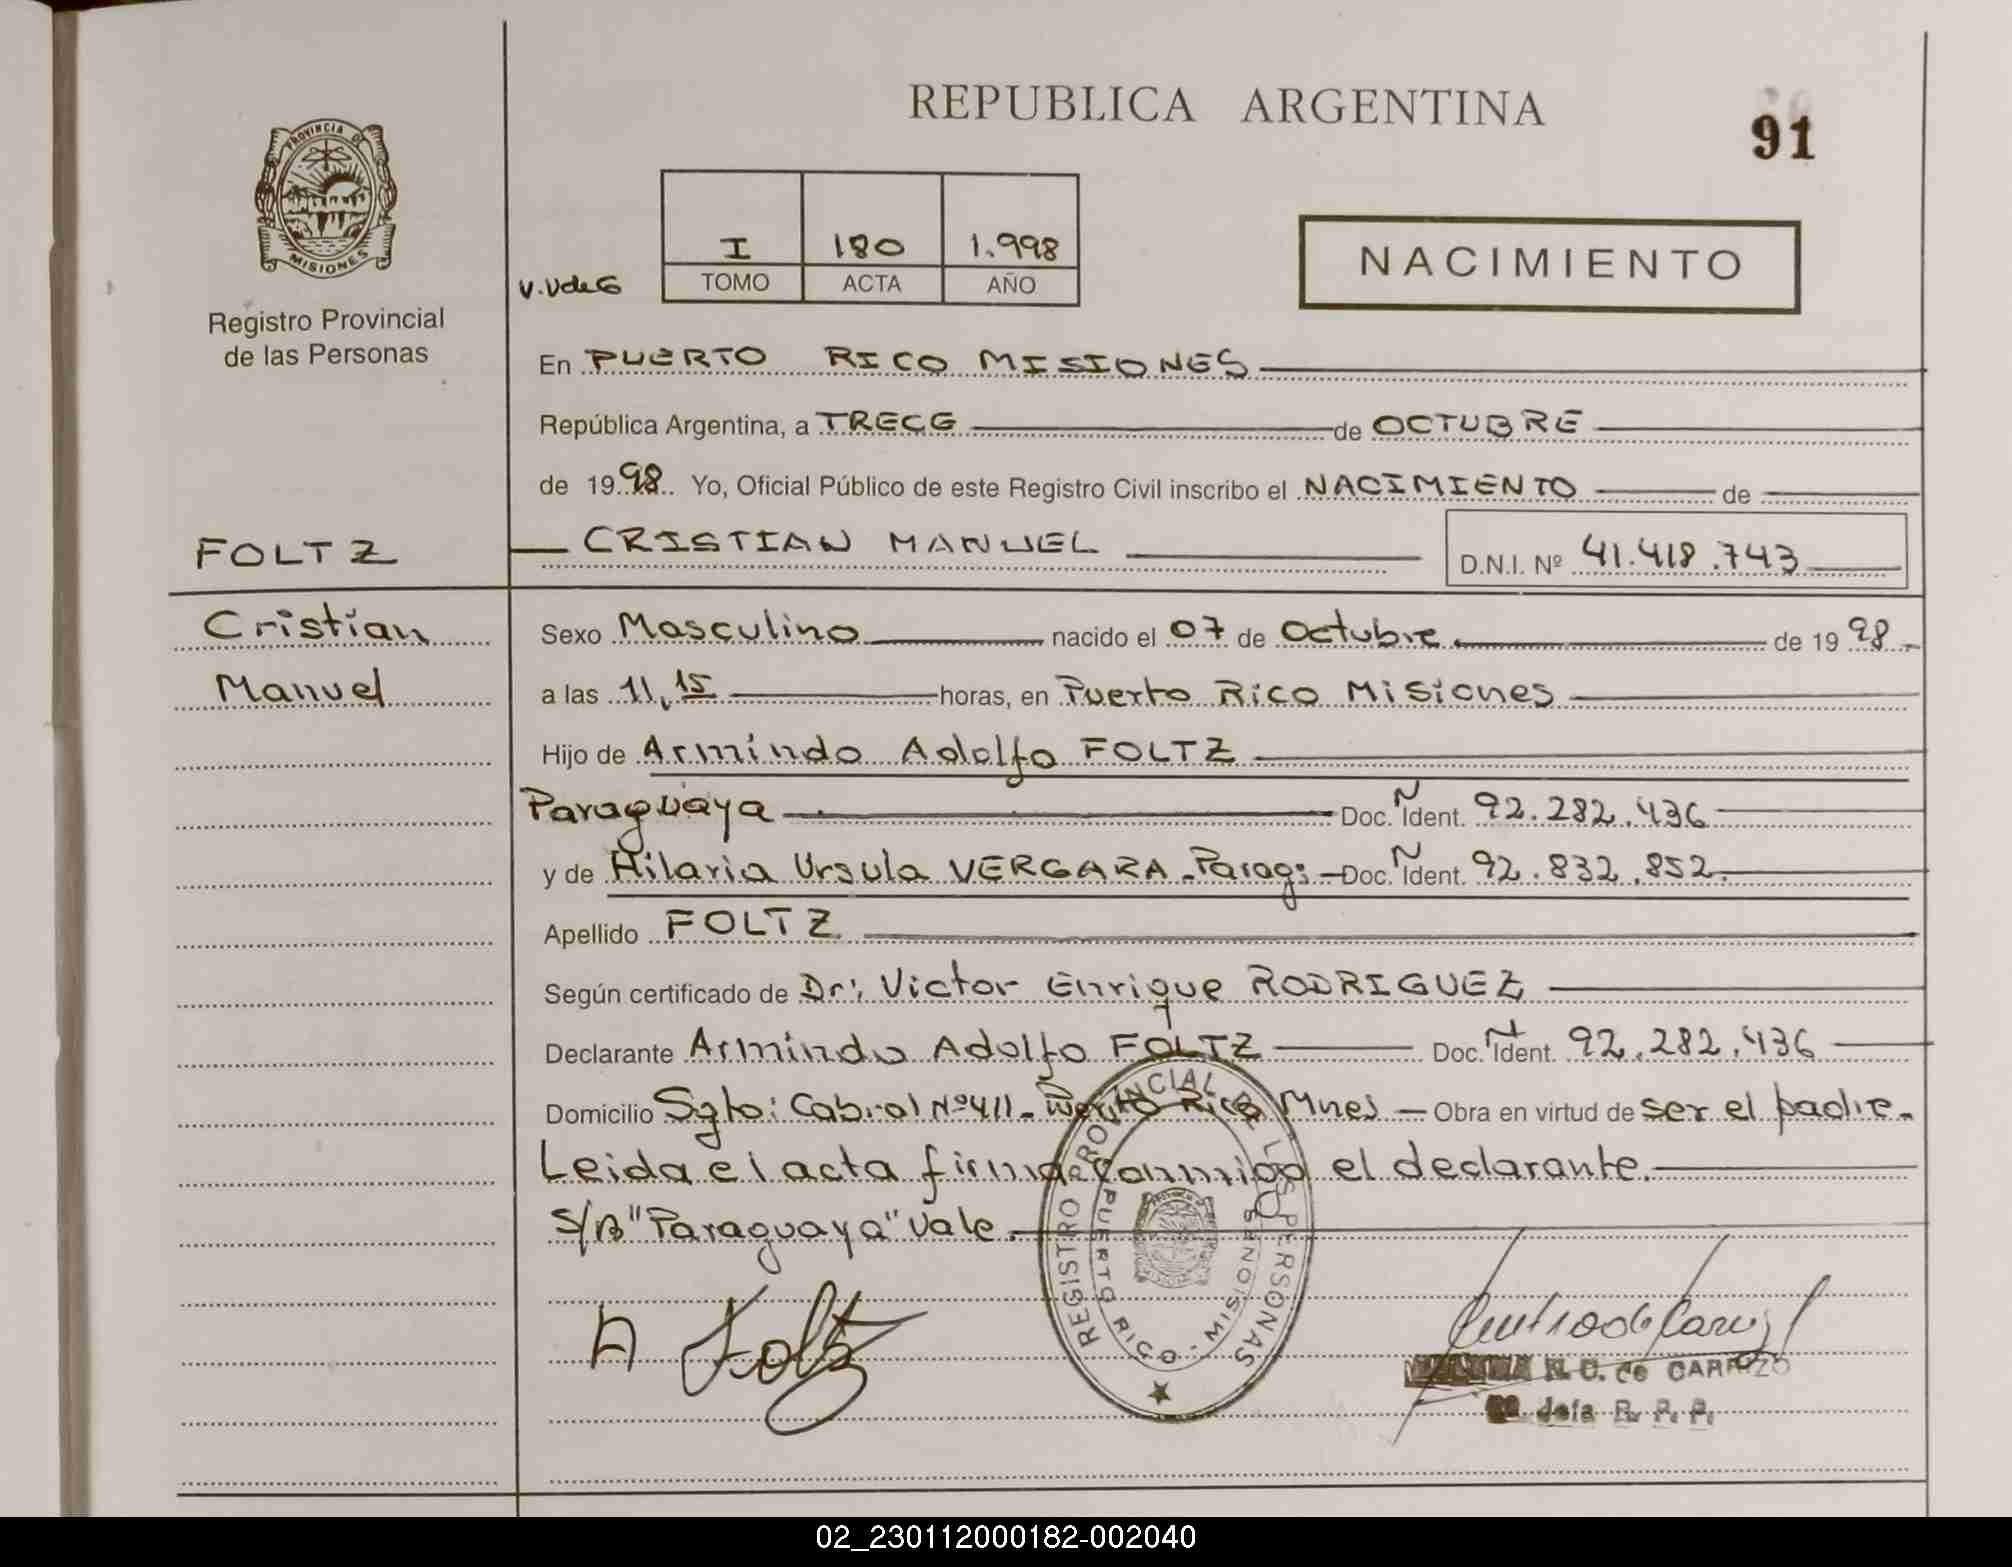 REPUBLICA ARGENTINA
91
PROVINCIA DE
MISIONES
Registro Provincial
de las Personas
V.VdeG
I 180 1.998
TOMO ACTA AÑO
NACIMIENTO
En PUERTO RICO MISIONES
República Argentina, a TRECE de OCTUBRE
de 1998 Yo, Oficial Público de este Registro Civil inscribo el NACIMIENTO de
FOLTZ
CRISTIAN MANUEL D.N.I. Nº 41.418.743
Cristian
Manuel
Sexo Masculino nacido el 07 de Octubre de 1998
a las 11,15 horas, en Puerto Rico Misiones
Hijo de Armindo Adolfo FOLTZ
Paraguaya Doc. Ñ Ident. 92.282.436
y de Hilaria Ursula VERGARA - Parag: Doc. Ñ Ident. 92.832.852.
Apellido FOLTZ
Según certificado de Dr: Victor Enrique RODRIGUEZ
Declarante Armindo Adolfo FOLTZ Doc. Ñ Ident. 92.282.436
Domicilio Sgto: Cabral Nº 411 - Puerto Rico Mnes - Obra en virtud de ser el padre.
Leida el acta firma conmigo el declarante.
S/B "Paraguaya" Vale.
A Foltz
REGISTRO PROVINCIAL DE LAS PERSONAS
PUERTO RICO - MISIONES
N. C. de CARRIZO
Jefa R. P. P.
02_230112000182-002040